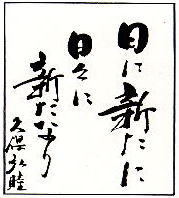 日に新たに
日々に
新たなり
久保弘睦